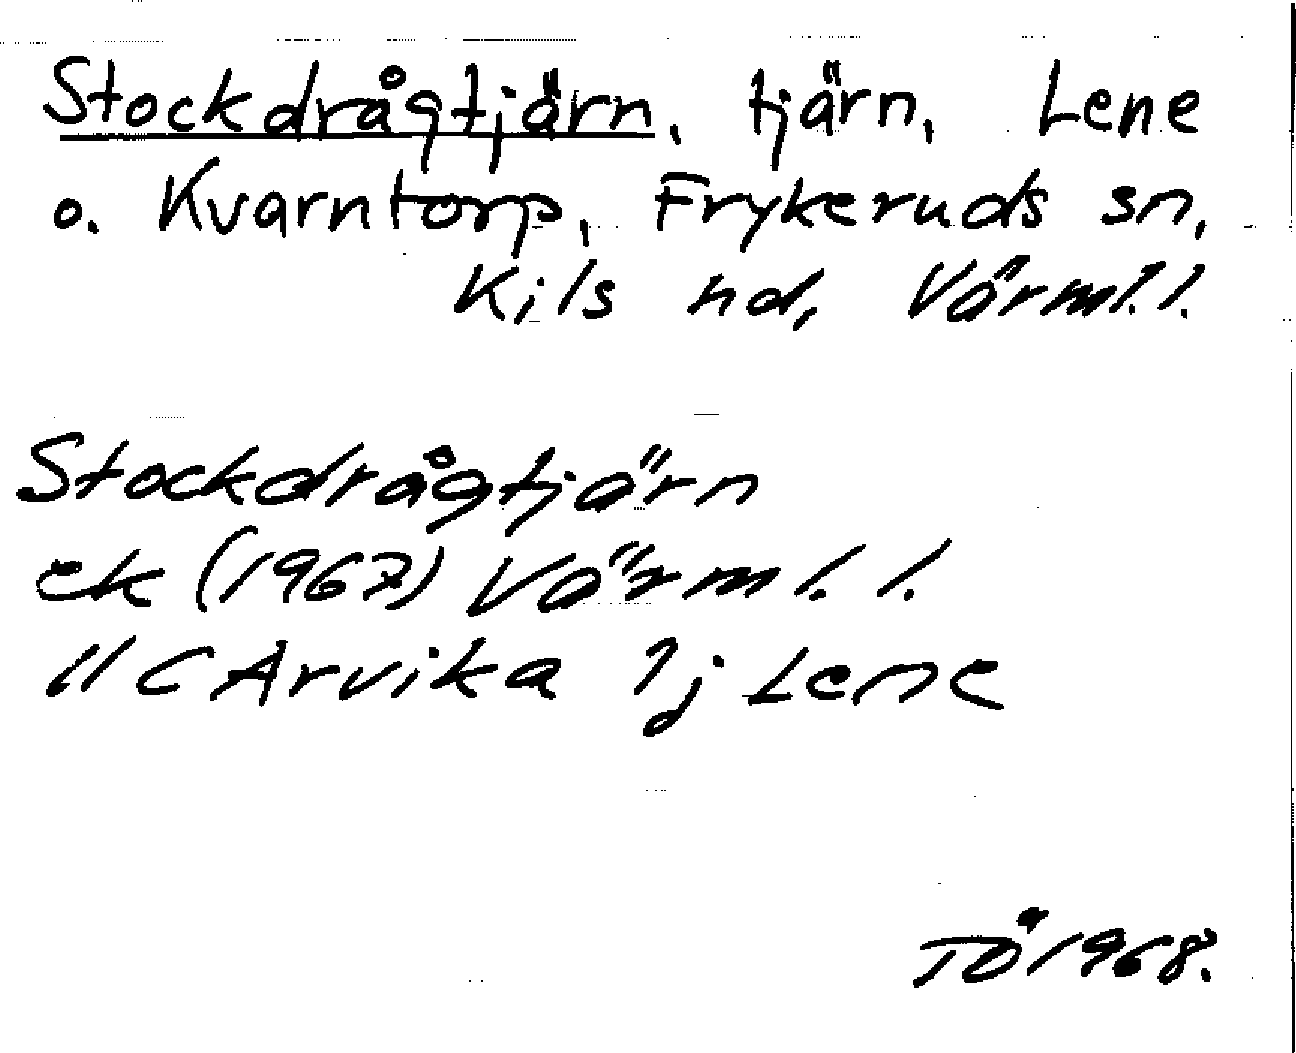 Stockdrågtjärn, tjärn, Lene
o. Kvarntorp, Frykeruds sn,
Kils hd, Värml. l.
Stockdrågtjärn
ek (1967) Värml. l.
11 C Arvika 1j Lene
TÖ 1968.